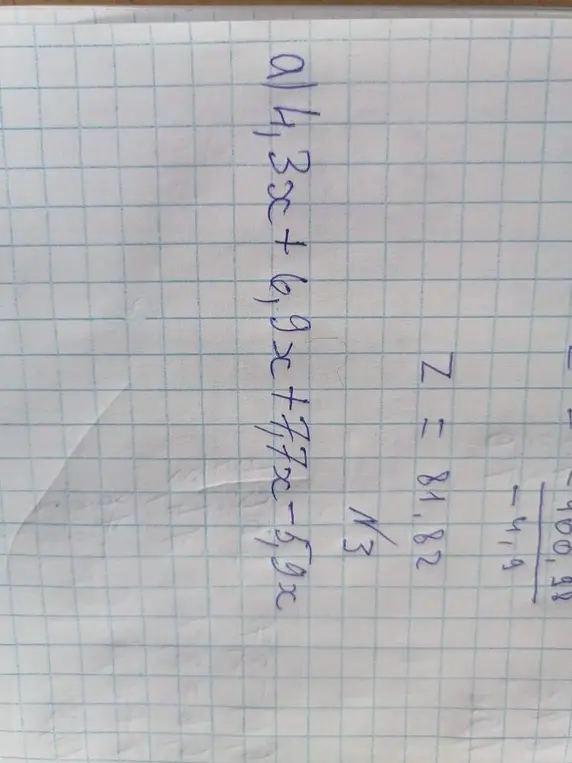 = -400,98
-4,9
Z = 81,82
N3
а) 4,3x + 6,9x + 7,7x - 5,9x